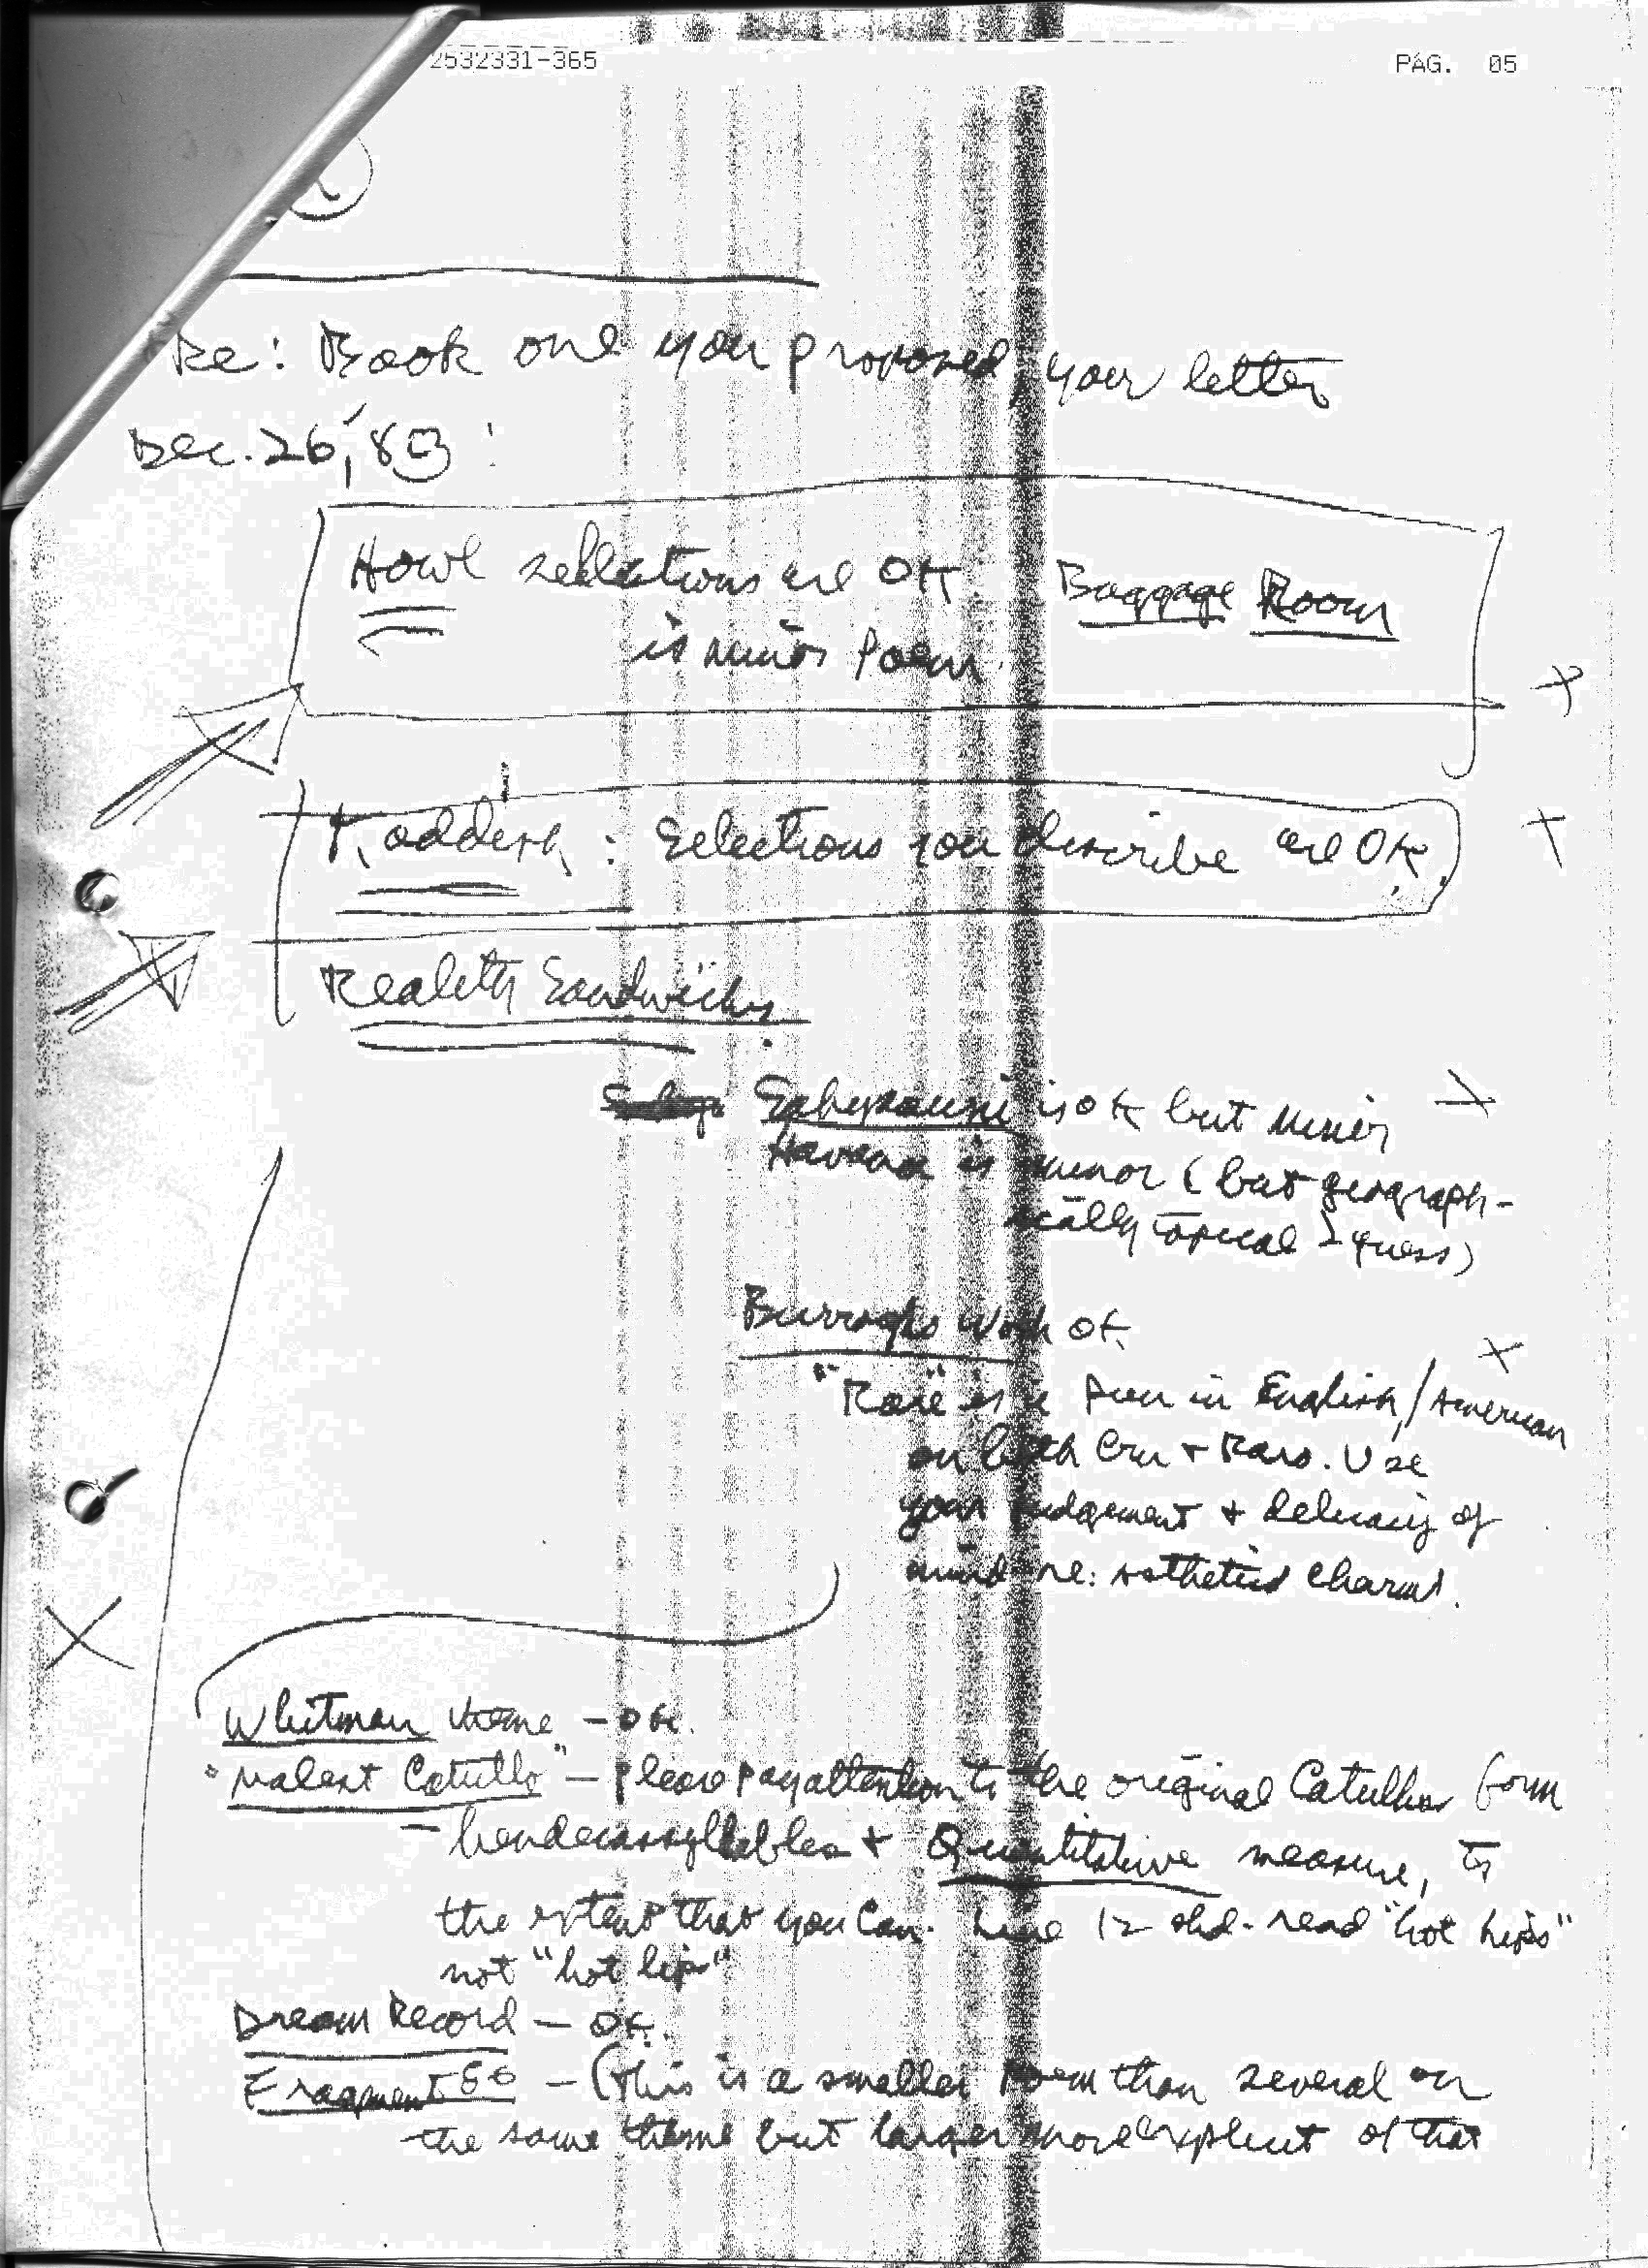 2532331-365 PAG. 05
Re: Book one you proposed, your letter
Dec. 26, 83 :
Howl selections are OK Baggage Room
is minor Poem.
Kaddish : Selections you describe are OK.
Reality Sandwiches
is OK but minor
Havana is minor (but geograph-
ically topical I guess)
Burroughs Work OK
"Rose" is a pun in English/American
on both Cru + Raro. Use
your judgement + delicacy of
mind re: esthetics charms.
Whitman theme – OK.
"Malest Catullo" – Please pay attention to the original Catullus form
– hendecasyllables + Quantitative measure, to
the extent that you can. Line 12 shd. read "hot hips"
not "hot lips"
Dream Record – OK.
Fragment 56 – (this is a smaller poem than several on
the same theme but larger more explicit of that